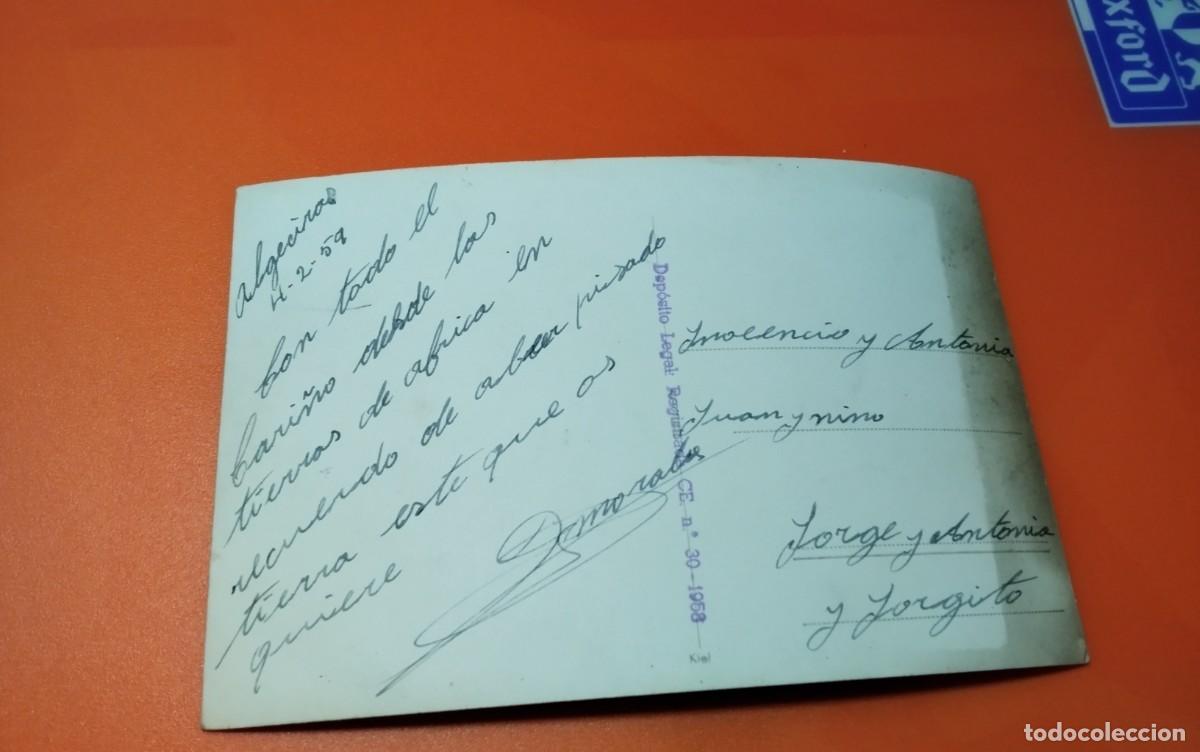 Oxford
Algeciras
4-2-59
Con todo el
Cariño desde las
tierras de africa en
recuerdo de aber pisado
tierra este que os
quiere
Dmorales
Depósito Legal: Registrado CE. n.° 30-1958
Kiel
Inocencio y Antonia
Juan y nino
Jorge y Antonia
y Jorgito
todocoleccion